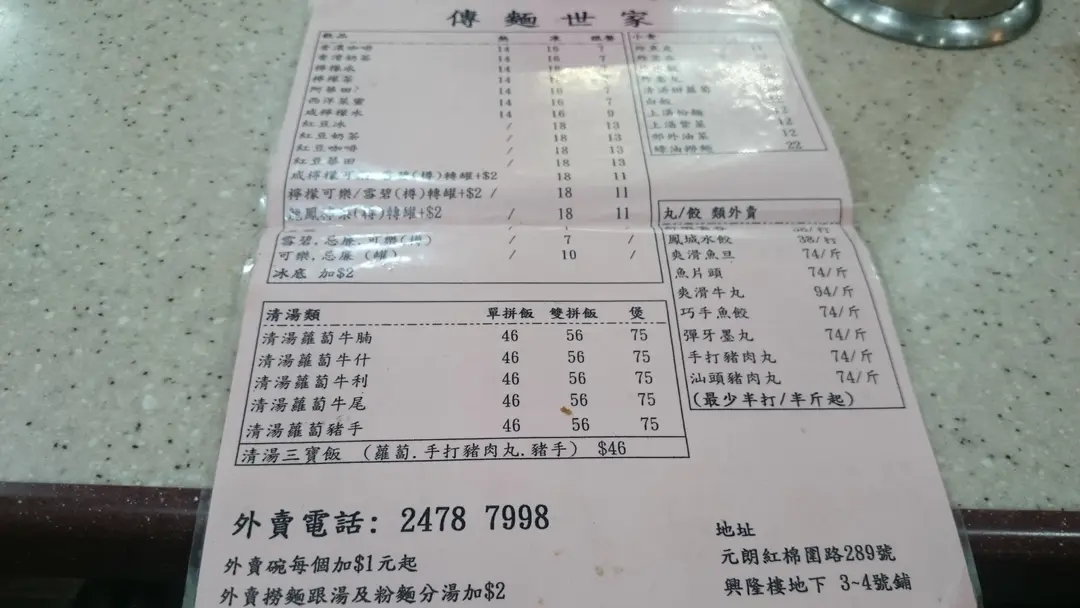 傳麵世家
飲品 熱 凍 跟餐
香濃咖啡 14 16 7
香滑奶茶 14 16 7
檸檬水 14 16
檸檬茶 14 16
阿華田 14 16 7
西洋菜蜜 14 16 7
咸檸檬水 14 16 9
紅豆冰 / 18 13
紅豆奶茶 / 18 13
紅豆咖啡 / 18 13
紅豆華田 / 18 13
咸檸檬可樂/雪碧(樽)轉罐+$2 18 11
檸檬可樂/雪碧(樽)轉罐+$2 / 18 11
(樽)轉罐+$2 / 18 11
雪碧.忌廉.可樂(樽) / 7 /
可樂.忌廉 (罐) / 10 /
冰底 加$2
小食
清湯拼蘿蔔
白飯
上湯粉麵
上湯紫菜 12
郊外油菜 12
蠔油撈麵 22
丸/餃 類外賣
鳳城水餃 38/打
爽滑魚旦 74/斤
魚片頭 74/斤
爽滑牛丸 94/斤
巧手魚餃 74/斤
彈牙墨丸 74/斤
手打豬肉丸 74/斤
汕頭豬肉丸 74/斤
(最少半打/半斤起)
清湯類 單拼飯 雙拼飯 煲
清湯蘿蔔牛腩 46 56 75
清湯蘿蔔牛什 46 56 75
清湯蘿蔔牛利 46 56 75
清湯蘿蔔牛尾 46 56 75
清湯蘿蔔豬手 46 56 75
清湯三寶飯 (蘿蔔.手打豬肉丸.豬手) $46
外賣電話: 2478 7998
外賣碗每個加$1元起
外賣撈麵跟湯及粉麵分湯加$2
地址
元朗紅棉圍路289號
興隆樓地下 3~4號舖